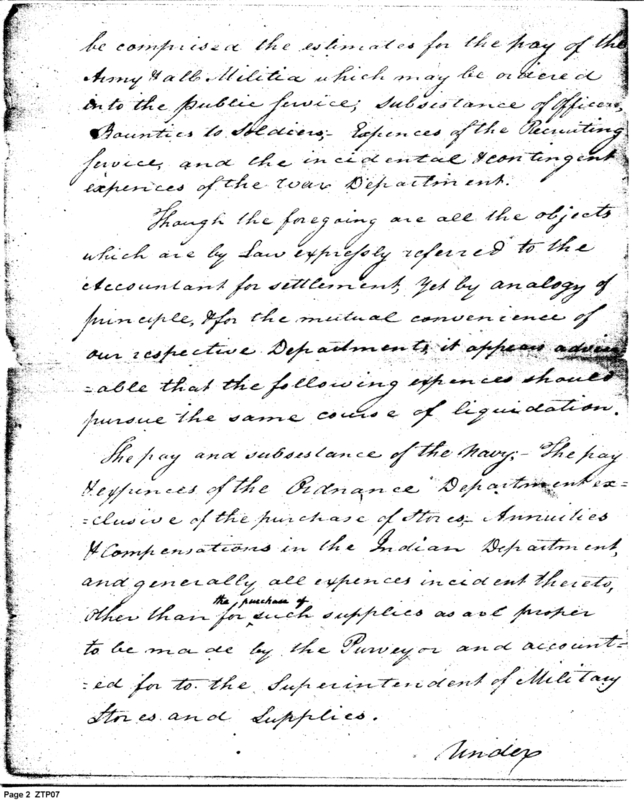 be comprised the estimates for the pay of the
Army & all Militia which may be ordered
into the public service; subsistance of Officers,
Bounties to Soldiers,- Expences of the Recruiting
service, and the incidental & contingent
expences of the War Department.
Though the foregoing are all the objects
which are by Law expressly referred to the
Accountant for settlement, yet by analogy of
principle, & for the mutual convenience of
our respective Departments, it appears advise
=able that the following expences should
pursue the same course of liquidation.
The pay and subsistance of the Navy;- The pay
& expences of the Ordnance Department ex=
=clusive of the purchase of Stores,- Annuities
& Compensations in the Indian Department,
and generally all expences incident thereto,
the purchase of
other than for such supplies as are proper
to be made by the Purveyor and account-
=ed for to the Superintendent of Military
Stores and Supplies.
Under
Page 2 ZTP07